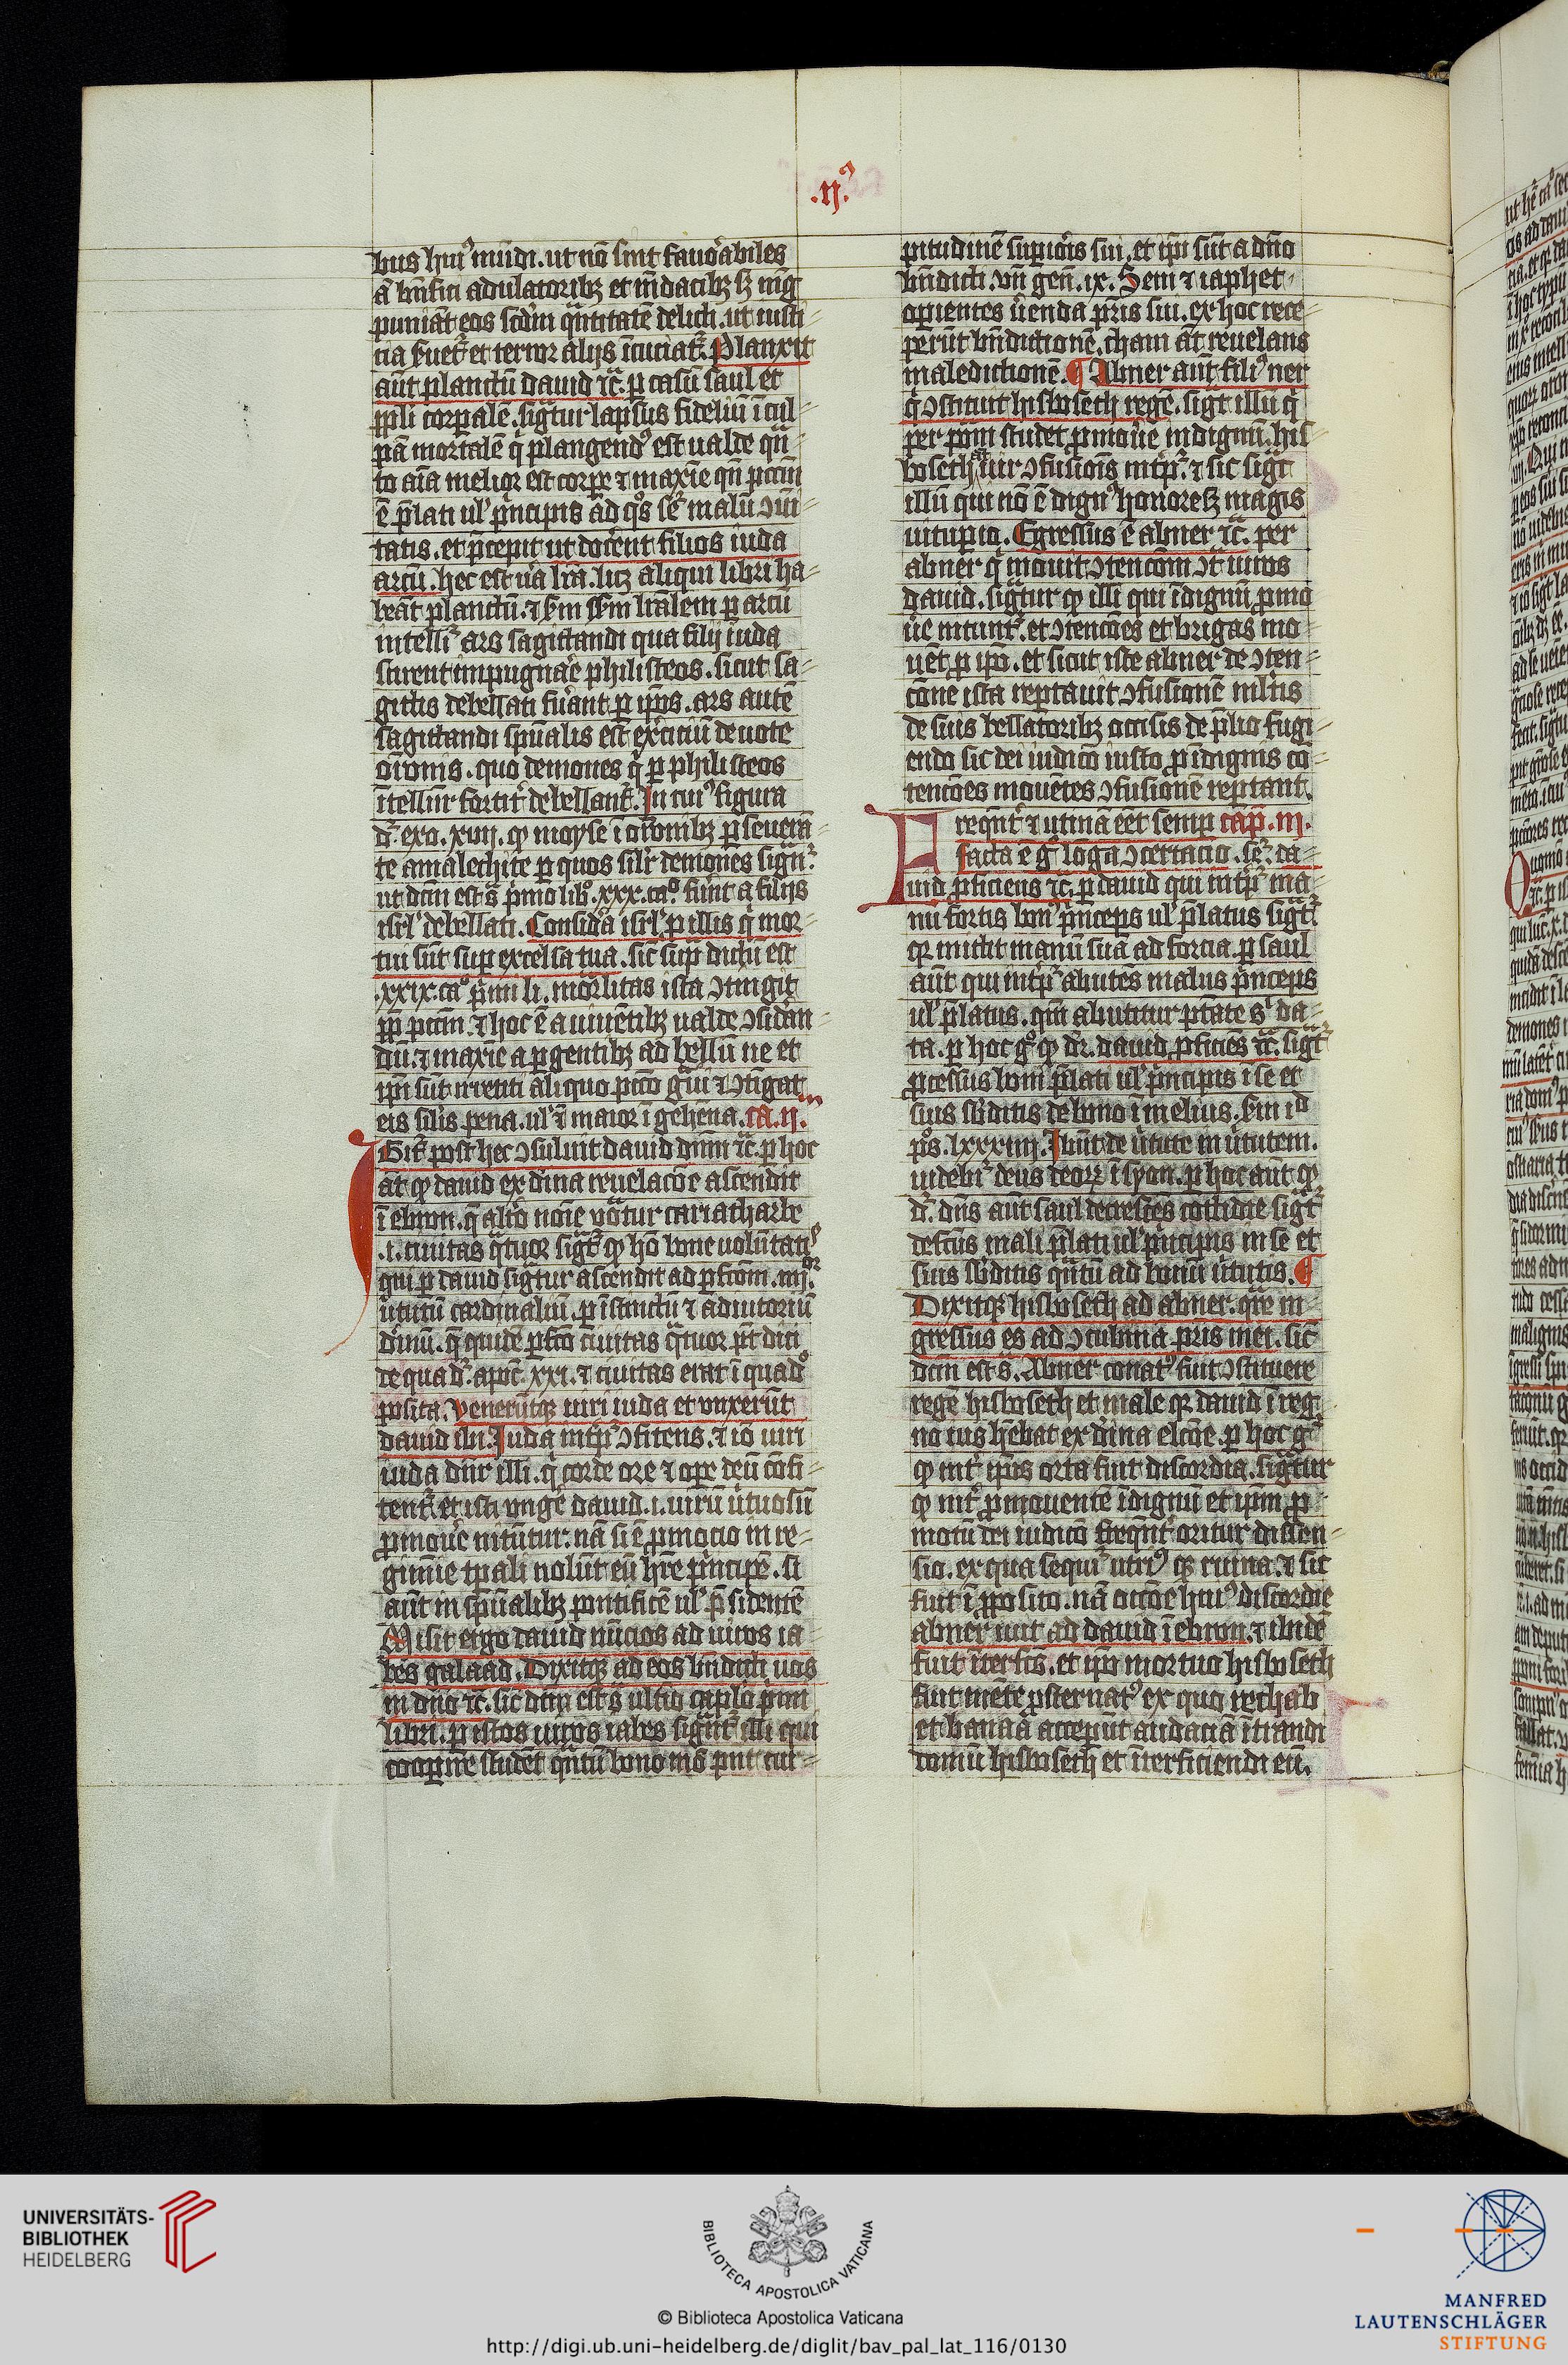 .ij.ꝰ
bus huiꝰ mūdi. ut nō sint fauorabiles
puniāt eos scdm q̄ntitatē delicti. ut iusti-
cia fuet᷒ et terror alijs īcuciat᷒. Planxit
aūt planctū dauid ⁊c̄. p casū saul et
ppli corꝑalē. sigtur lapsus fideliū ī cul-
pā mortalē q̇ plangendꝰ est ualde qn̄-
to aīa melior est corpe ⁊ maxīe qn̄ pctm̄
tatis. et p̄cepit ut docerent filios iuda
arcū. hec est ūa lr̄a. licꝫ aliqui libri ha-
beāt planctū. ⁊ scdm sēm lr̄alem p arcū
intelli᷒ ars sagittandi qua filij iuda
scirent impugnāe philisteos. sicut sa-
gittis debellati fu̇ant p ip̄os. ars autē
sagittandi sp̄ualis est exercitiū deuote
or̄onis. quo demones q̇ p philisteos
ītelligūr fortiṫ debellant᷒. In cuiꝰ figura
d᷒. exo. xvij. ꝙ moyse ī or̄onibꝫ pseuerā-
te amalechite p quos silr̄ demones sign᷒.
ut dcm̄ est s̄ pͥmo libͦ. xxx. caͦ. fu̇nt a filijs
isrl̄ debellati. Considᷓa isrl̄ p illis q̇ mor-
tui sūt sup excelsa tua. sic̄ sup̄ dictū est
.xxix. caͦ pͥmi li. moralitas ista ↄtingit
pp̄ pctm̄. ⁊ hoc ē a uiuētibꝫ ualde ↄsidᷓan-
dū. ⁊ maxīe a pgentibꝫ ad bellū ne et
ip̄i sūt irretiti aliquo pctō gᷓui ⁊ ↄtīgat
eis silis pena. ul̄ ī maior ī gehēna. ca. ij.m
Igit᷒ post hec ↄsuluit dauid dn̄m ⁊c̄. p hoc
āt ꝙ dauid ex diīna reuelacōe ascendit
ī ebron. q̄ alio noīe uocatur cariatharbe
.i. ciuitas qᷓtuor sigt᷒ ꝙ hō bone uolūtatis
qui p dauid sigtur ascendit ad pfcōm .iiij.or
u̇tutū cardinaliū. p īstinctū ⁊ adiutoriū
diuinū. q̄ quidē pfcō ciuitas qᷓtuor pt̄ dici
de qua d᷒. apoc̄. xxi. ⁊ ciuitas erat ī quadͦ
posita. Venerūtqꝫ uiri iuda et vnxerūt
dauid ibi. Iuda int᷒p᷒ ↄfitens. ⁊ iō uiri
iuda dn̄r illi. q̇ corde ore ⁊ ope deū cōfi-
tent᷒. et isti vngē dauid .i. uirū u̇tuosū
pmoue nitūtur. nā si ē pmocio in re-
gimīe tp̄ali nolūt eū hr̄e pͥncipē. si
aūt in sp̄ualibꝫ pontificē ul̄ p̄sidentē
Misit ergo dauid nūcios ad uiros ia-
bes galaad. Dixitqꝫ ad eos bn̄dicti uos
in dn̄o ⁊c̄. sic̄ dcm̄ est s̄ ultīo caplo pͥmi
libri. p istos uiros iabes sign̄t᷒ illi qui
coopire studēt qn̄tū bono mō pn̄t tur-
pitudinē supioris sui. et ip̄i sūt a dn̄o
bn̄dicti. vn̄ gen̄. ix. Sem ⁊ iaphet
opientes u̇enda pr̄is sui. ex hoc rece-
perūt bn̄dictionē. cham āt reuelans
maledictionē. ¶ Abner aūt filiꝰ ner
q̇ ↄstituit hisboseth regē. sigt illū q̇
per ip̄m studet pmouē indignū. his-
boseth at uir ↄfusiōis int᷒p᷒. ⁊ sic sigt
illū qui nō ē dignꝰ honore sꝫ magis
uitupio. Egressus ē abner ⁊c̄. per
abner q̇ mouit ↄtencōm ↄt uiros
dauid. sigtur ꝙ illi qui īdignū pmo
u̇e nitunt᷒. et ↄtencōes et brigas mo
uēt p ip̄o. et sicut iste abner de ↄten-
cōne ista reptauit ↄfusionē mltis
de suis bellatoribꝫ occisis de p̄lio fugi-
endo sic dei iudicō iusto p īdignis cō-
tencōes mouētes ↄfusionē reptant.
Freqn̄t᷒ ⁊ utina eēt semp cap̄. iij.
Facta ē gͦ lōga ↄcertacio. sc᷒. da-
uid pficiens ⁊c̄. p dauid qui int᷒p᷒ ma-
nu fortis bonꝰ pͥnceps ul̄ p̄latus sigt᷒
qꝛ mittit manū suā ad forcia. p saul
aūt qui int᷒p᷒ abutēs malus pͥnceps
ul̄ p̄latus. qm̄ abutitur ptāte sͥ da-
ta. p hoc gͦ ꝙ dr̄. dauid pficiēs ⁊c̄. sigt᷒
pcessus boni p̄lati ul̄ pͥncipis ī se et
suis sbditis de bono ī melius. scdm id
pͦs. lxxxiij. Ibūt de u̇tute in u̇tutem.
uidebi᷒ deus deoꝝ ī syon. p hoc aūt ꝙ
d᷒. dn̄s aūt saul decrescēs cottidie sigt᷒
defcūs mali p̄lati ul̄ pͥncipis in se et
suis sbditis qn̄tū ad bonū u̇tutis. ¶
Dixitqꝫ hisboseth ad abner. qͣre in-
gressus es ad ↄcubinā pr̄is mei. sic̄
dcm̄ est s̄. Abner conatꝰ fuit ↄstituere
regē hisboseth et male qꝛ dauid ī reg-
no ius hēbat ex diīna elcōe. p hoc gͦ
ꝙ int᷒ ip̄os orta fuit discordia. sigtur
ꝙ int᷒ pmouentē īdignū et ip̄m p-
motū dei iudicō freqn̄t᷒ oritur dissen-
sio. ex qua sequi᷒ utriꝰqꝫ ruina. ⁊ sic
fuit ī pposito. nā occōe huiꝰ discordie
abner iuit ad dauid ī ebron. ⁊ ibidē
fuit īterfcūs. et ip̄o mortuo hisboseth
fuit mēte ↄsternatꝰ ex quo rechab
et banaā acceperūt audaciā ītrandi
domū hisboseth et īterficiendi eū.
UNIVERSITÄTS-
BIBLIOTHEK
HEIDELBERG
BIBLIOTECA APOSTOLICA VATICANA
© Biblioteca Apostolica Vaticana
http://digi.ub.uni-heidelberg.de/diglit/bav_pal_lat_116/0130
MANFRED
LAUTENSCHLÄGER
STIFTUNG